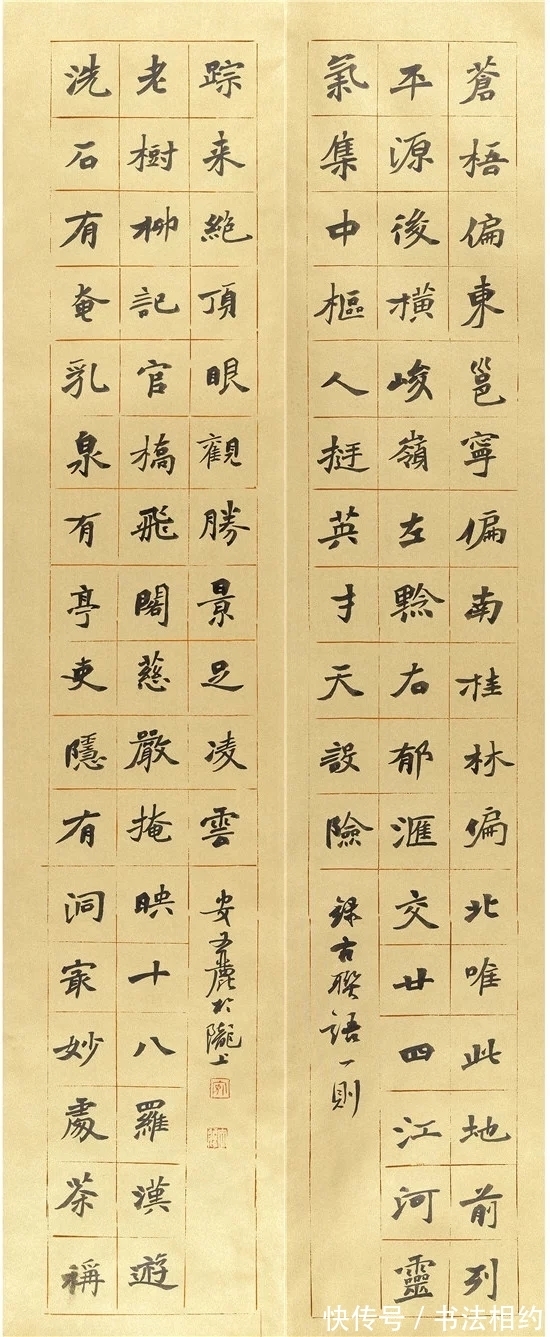 蒼梧偏東邕寧偏南桂林偏北唯此地前列
平源後橫峻嶺左黔右郁滙交廿四江河靈
氣集中樞人挺英才天設險
錄古聯語一則
洗石有奄乳泉有亭吏隱有洞冣妙處茶稱
老樹柳記官橋飛閣慈嚴掩映十八羅漢遊
踪来絕頂眼觀勝景足凌雲
安麗於隴上
快传号/书法相约